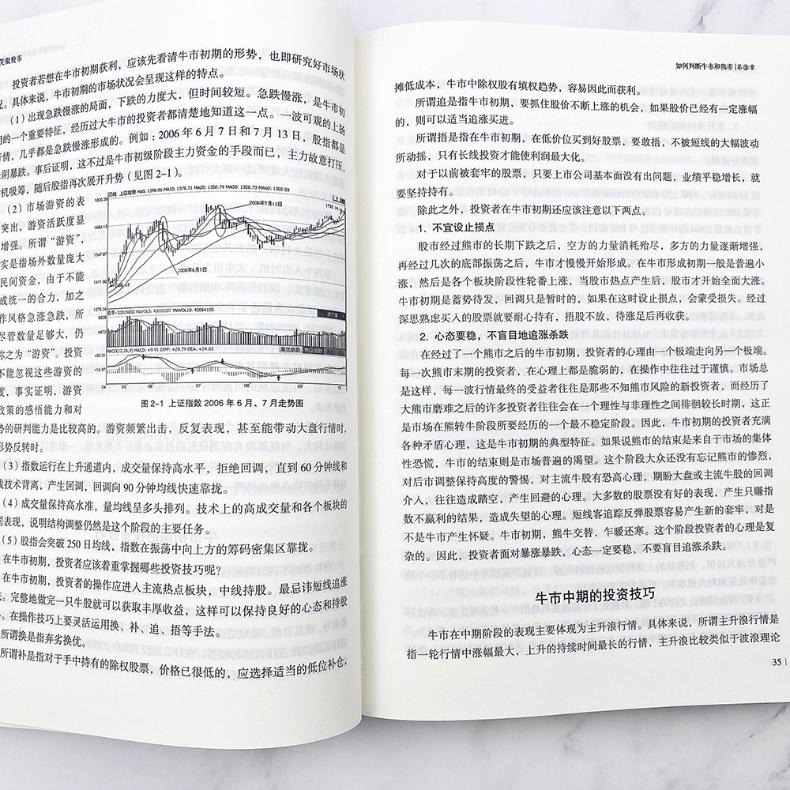 如何判断牛市和熊市 | 第②章
投资者若想在牛市初期获利，应该先看清牛市初期的形势，也即研究好市场状
况。具体来说，牛市初期的市场状况会呈现这样的特点。
（1）出现急跌慢涨的局面，下跌的力度大，但时间较短。急跌慢涨，是牛市初
的一个重要特征，经历过大牛市的投资者都清楚地知道这一点。一波可观的上扬
行情，几乎都是急跌慢涨形成的。例如：2006 年 6 月 7 日和 7 月 13 日，股指都是
阴暴跌。事后证明，这不过是牛市初级阶段主力资金的手段而已，主力故意打压，
机吸筹，随后股指再次展开升势（见图 2-1）。
（2）市场游资的表
突出，游资活跃度显
增强。所谓“游资”，
实是指场外数量庞大
民间资金，由于不能
成统一的合力，加之
作风格急涨急跌，所
尽管数量足够大，仍
称之为“游资”。投资
不能忽视这些游资的
度，事实证明，游资
政策的感悟能力和对
2006年7月13日
2006年6月7日
图 2-1 上证指数 2006 年 6 月、7 月走势图
势的研判能力是比较高的。游资频繁出击，反复表现，甚至能带动大盘行情时，
形势反转时。
（3）指数运行在上升通道内，成交量保持高水平，拒绝回调，直到 60 分钟线和
线技术背离，产生回调，回调向 90 分钟均线快速靠拢。
（4）成交量保持高水准，量均线呈多头排列。技术上的高成交量和各个板块的
表现，说明结构调整仍然是这个阶段的主要任务。
（5）股指会突破 250 日均线，指数在振荡中向上方的筹码密集区靠拢。
在牛市初期，投资者应该着重掌握哪些投资技巧呢？
在牛市初期，投资者的操作应进入主流热点板块，中线持股。最忌讳短线追涨
。完整地做完一只牛股就可以获取丰厚收益，这样可以保持良好的心态和持股
。在操作技巧上要灵活运用换、补、追、捂等手法。
所谓换是指弃劣换优。
所谓补是指对于手中持有的除权股票，价格已很低的，应选择适当的低位补仓，
摊低成本，牛市中除权股有填权趋势，容易因此而获利。
所谓追是指牛市初期，要抓住股价不断上涨的机会，如果股价已经有一定涨幅
的，则可以适当追涨买进。
所谓捂是指在牛市初期，在低价位买到好股票，要敢捂，不被短线的大幅波动
所动摇，只有长线投资才能使利润最大化。
对于以前被套牢的股票，只要上市公司基本面没有出问题，业绩平稳增长，就
要坚持持有。
除此之外，投资者在牛市初期还应该注意以下两点。
1. 不宜设止损点
股市经过熊市的长期下跌之后，空方的力量消耗殆尽，多方的力量逐渐增强，
再经过几次的底部振荡之后，牛市才慢慢开始形成。在牛市形成初期一般是普遍小
涨，然后是各个板块阶段性轮番上涨，当股市热点产生后，股市才开始全面大涨。
牛市初期是蓄势待发，回调只是暂时的，如果在这时设止损点，会蒙受损失。经过
深思熟虑买入的股票就要耐心持有，捂股不放，待涨足后再收获。
2. 心态要稳，不盲目地追涨杀跌
在经过了一个熊市之后的牛市初期，投资者的心理由一个极端走向另一个极端。
每一次熊市末期的投资者，在心理上都是脆弱的，在操作中往往过于谨慎。市场总
是这样，每一波行情最终的受益者往往是那些不知熊市风险的新投资者，而经历了
大熊市磨难之后的许多投资者往往会在一个理性与非理性之间徘徊较长时期，这正
是市场在熊转牛阶段所要经历的一个最不稳定阶段。因此，牛市初期的投资者充满
各种矛盾心理，这是牛市初期的典型特征。如果说熊市的结束是来自于市场的集体
性恐慌，牛市的结束则是市场普遍的渴望。这个阶段大众还没有忘记熊市的惨烈，
对后市调整保持高度的警惕，对主流牛股有恐高心理，期盼大盘或主流牛股的回调
介入，往往造成踏空，产生回避的心理。大多数的股票没有好的表现，产生只赚指
数不赢利的结果，造成失望的心理。短线客追踪反弹股票容易产生新的套牢，对是
不是牛市产生怀疑。牛市初期，熊牛交替，乍暖还寒。这个阶段投资者的心理是复
杂的。因此，投资者面对暴涨暴跌，心态一定要稳，不要盲目追涨杀跌。
牛市中期的投资技巧
牛市在中期阶段的表现主要体现为主升浪行情。具体来说，所谓主升浪行情是
指一轮行情中涨幅最大，上升的持续时间最长的行情，主升浪比较类似于波浪理论
35